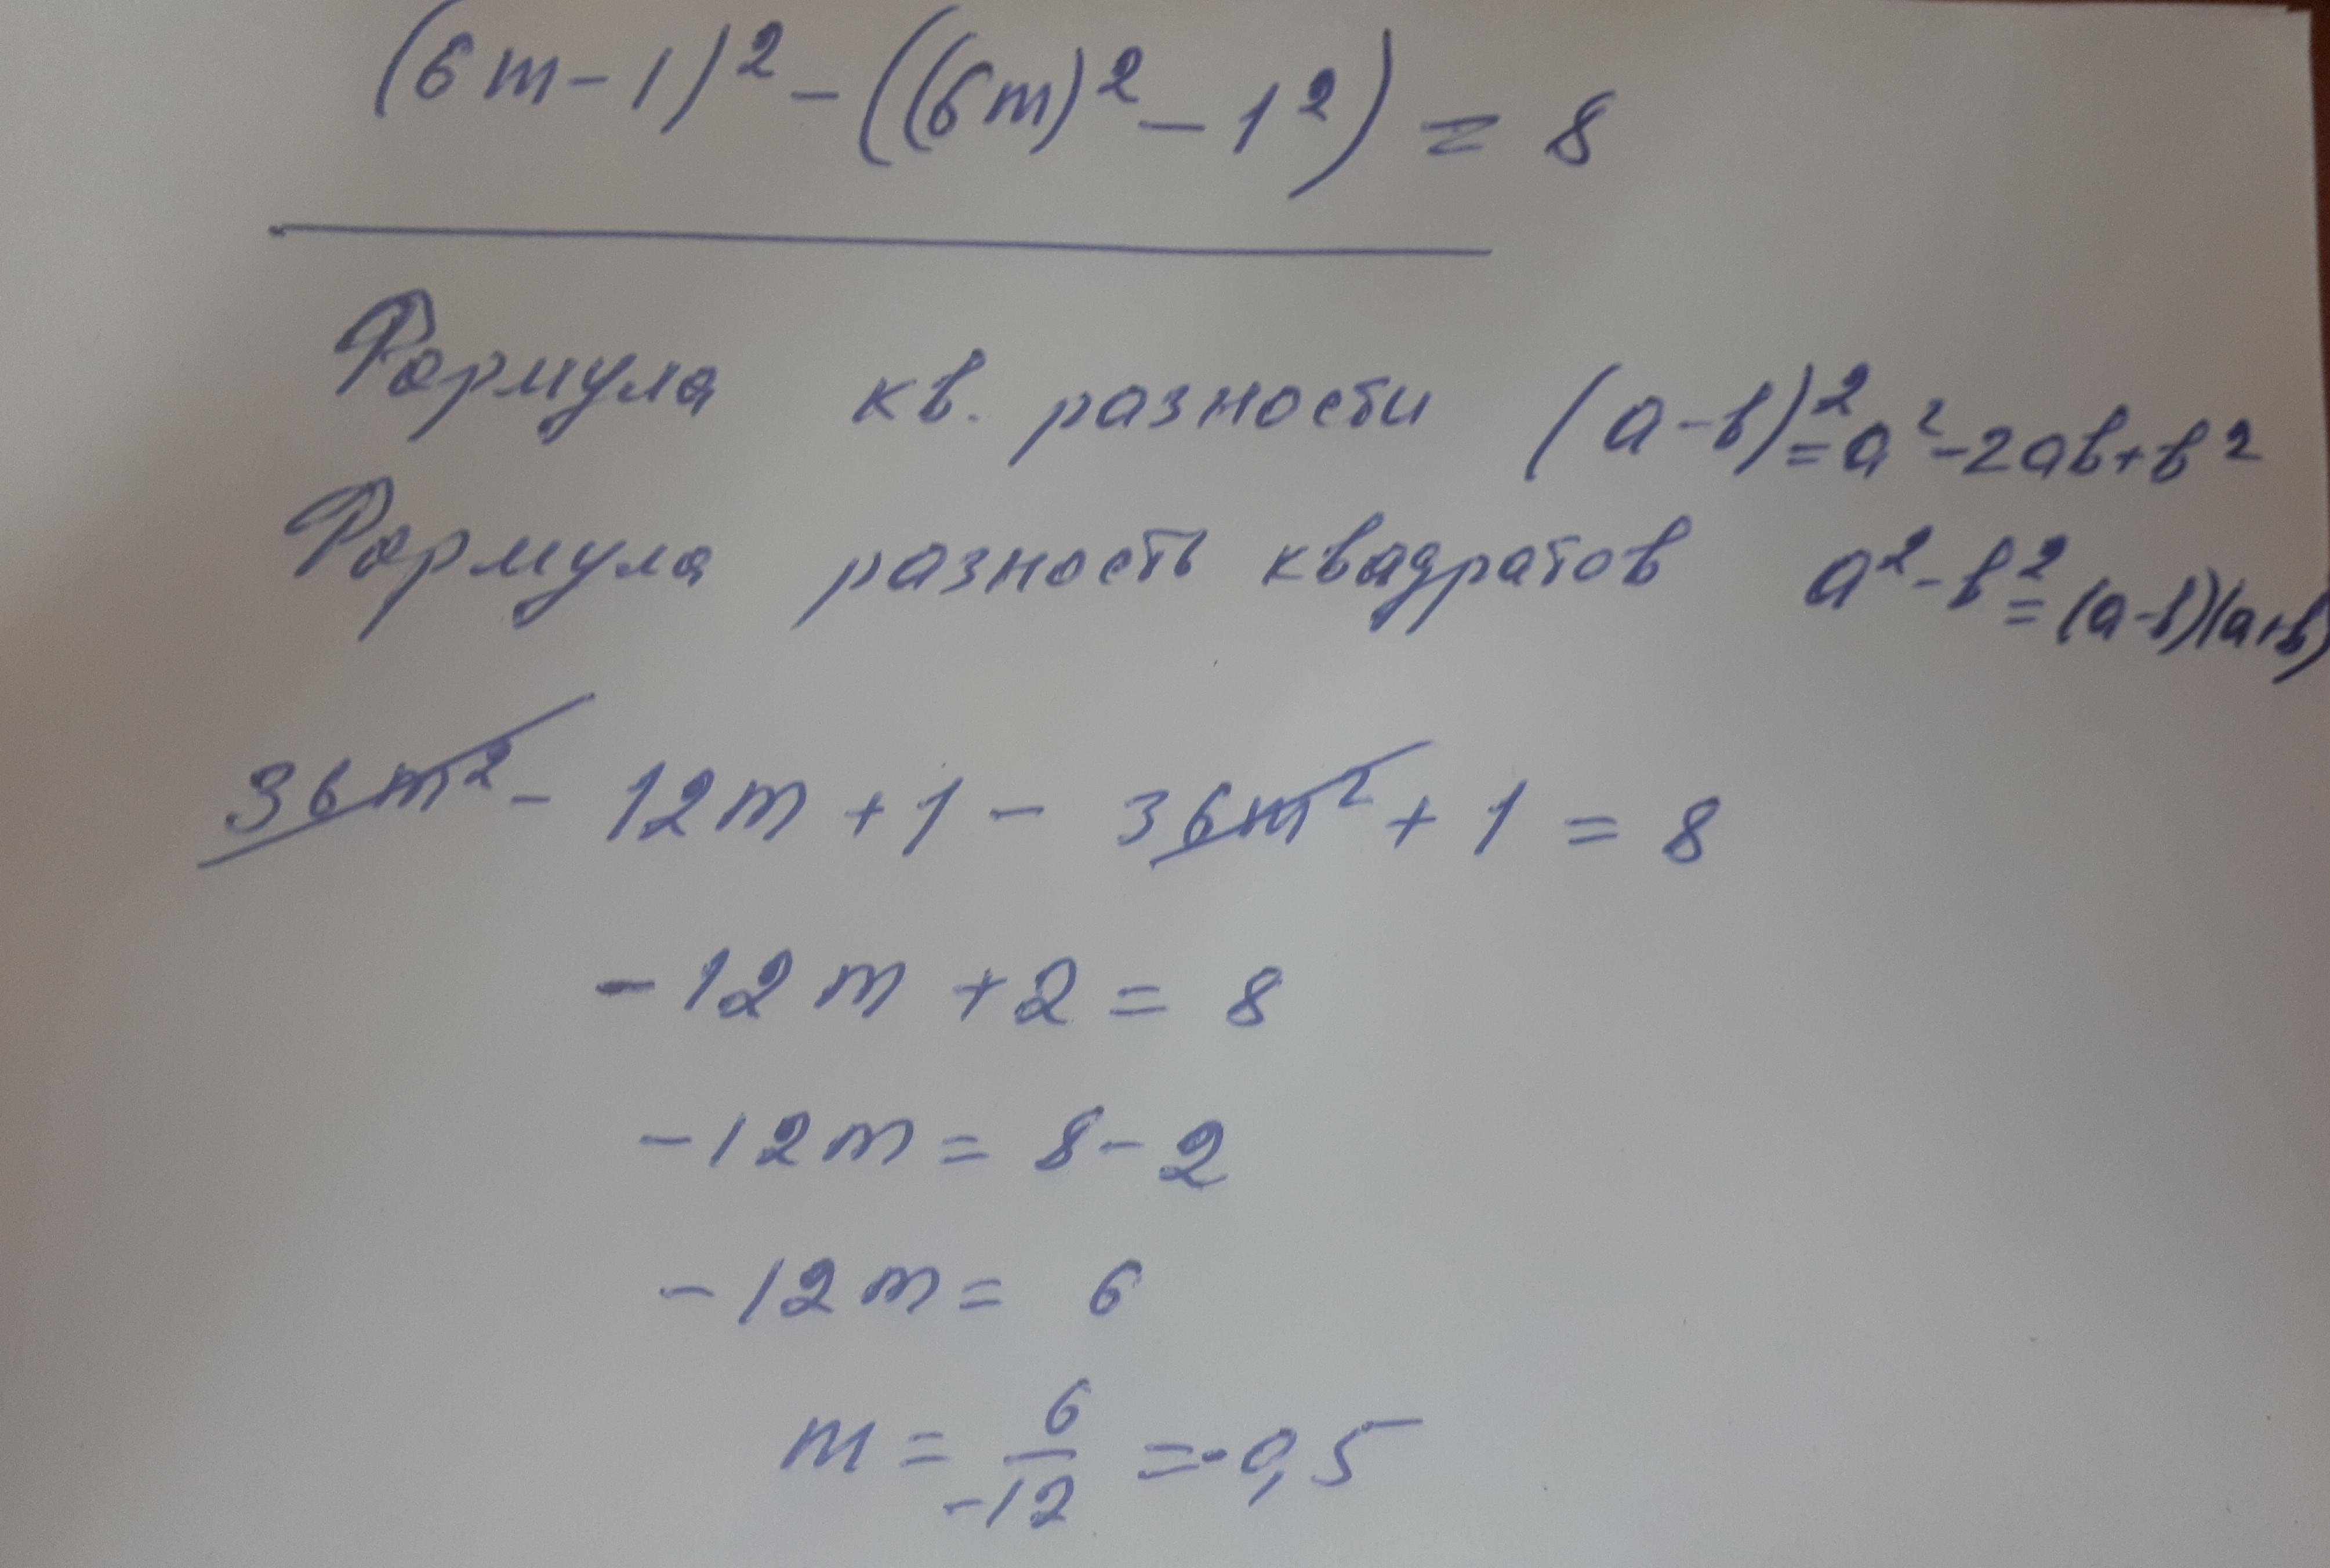 (6m-1)² - ((6m)² - 1²) = 8
Формула кв. разности (a-b)² = a² - 2ab + b²
Формула разность квадратов a² - b² = (a-b)(a+b)
36m² - 12m + 1 - 36m² + 1 = 8
-12m + 2 = 8
-12m = 8 - 2
-12m = 6
m = 6/-12 = -0,5